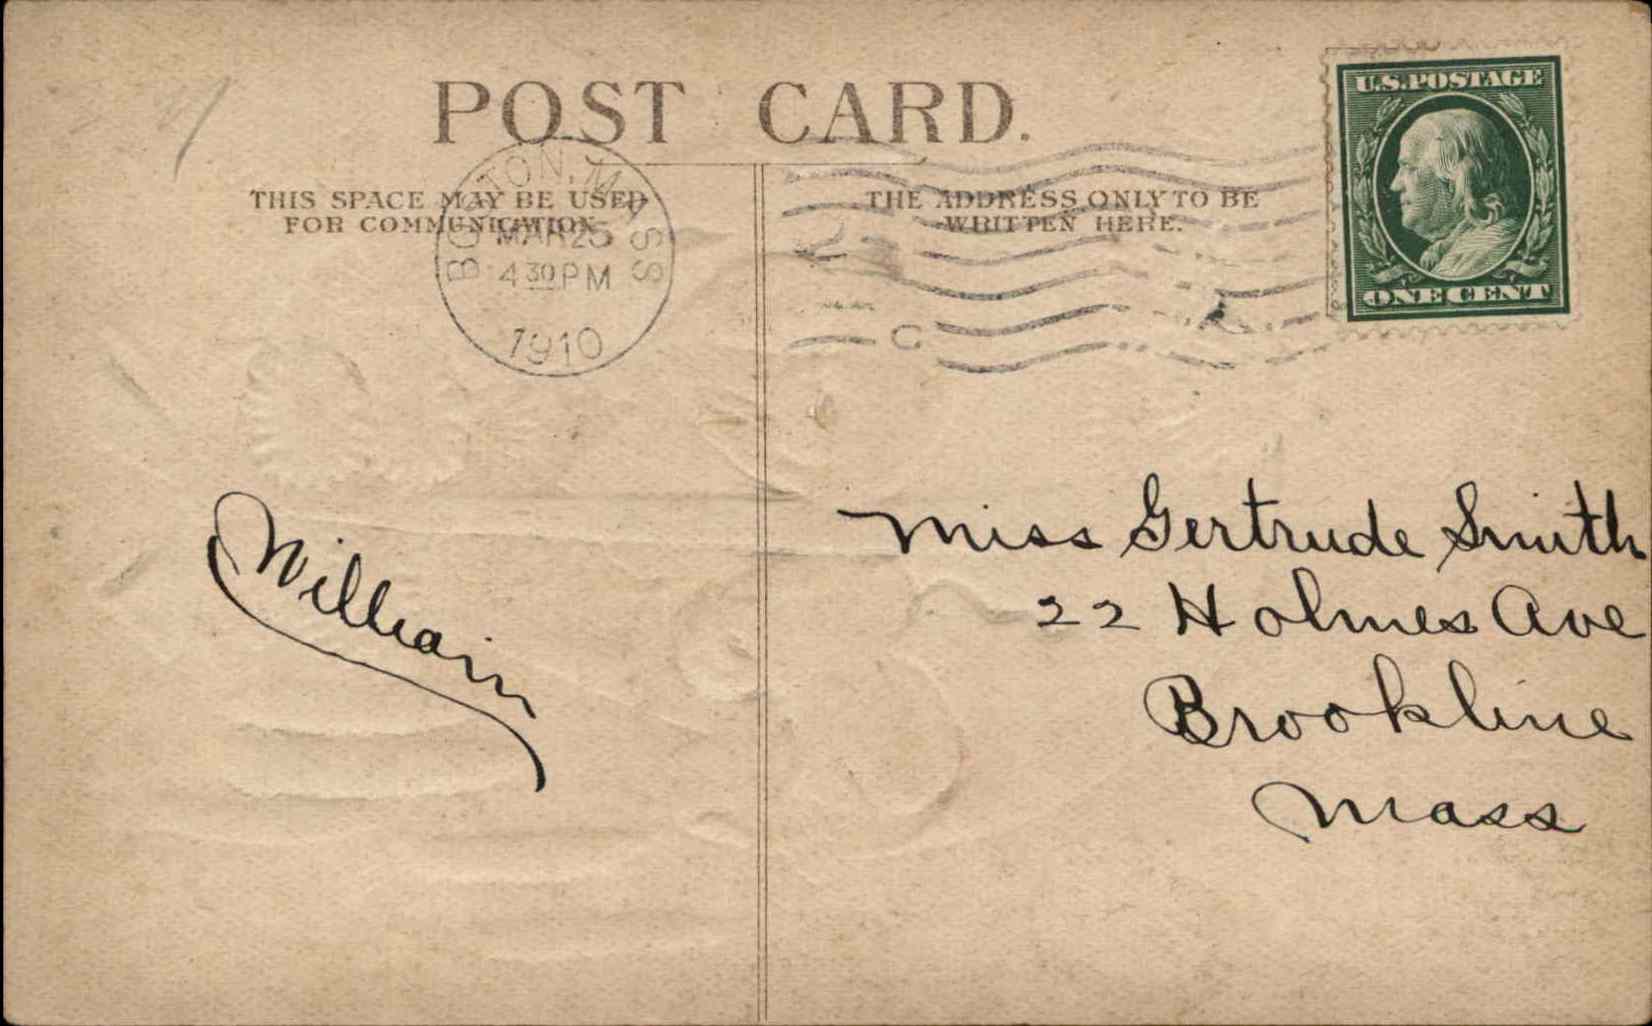 POST CARD.
THIS SPACE MAY BE USED
FOR COMMUNICATION.
THE ADDRESS ONLY TO BE
WRITTEN HERE.
BOSTON, MASS
MAR 25
4 30 PM
1910
C
U.S. POSTAGE
ONE CENT
William
Miss Gertrude Smith
22 Holmes Ave
Brookline
Mass